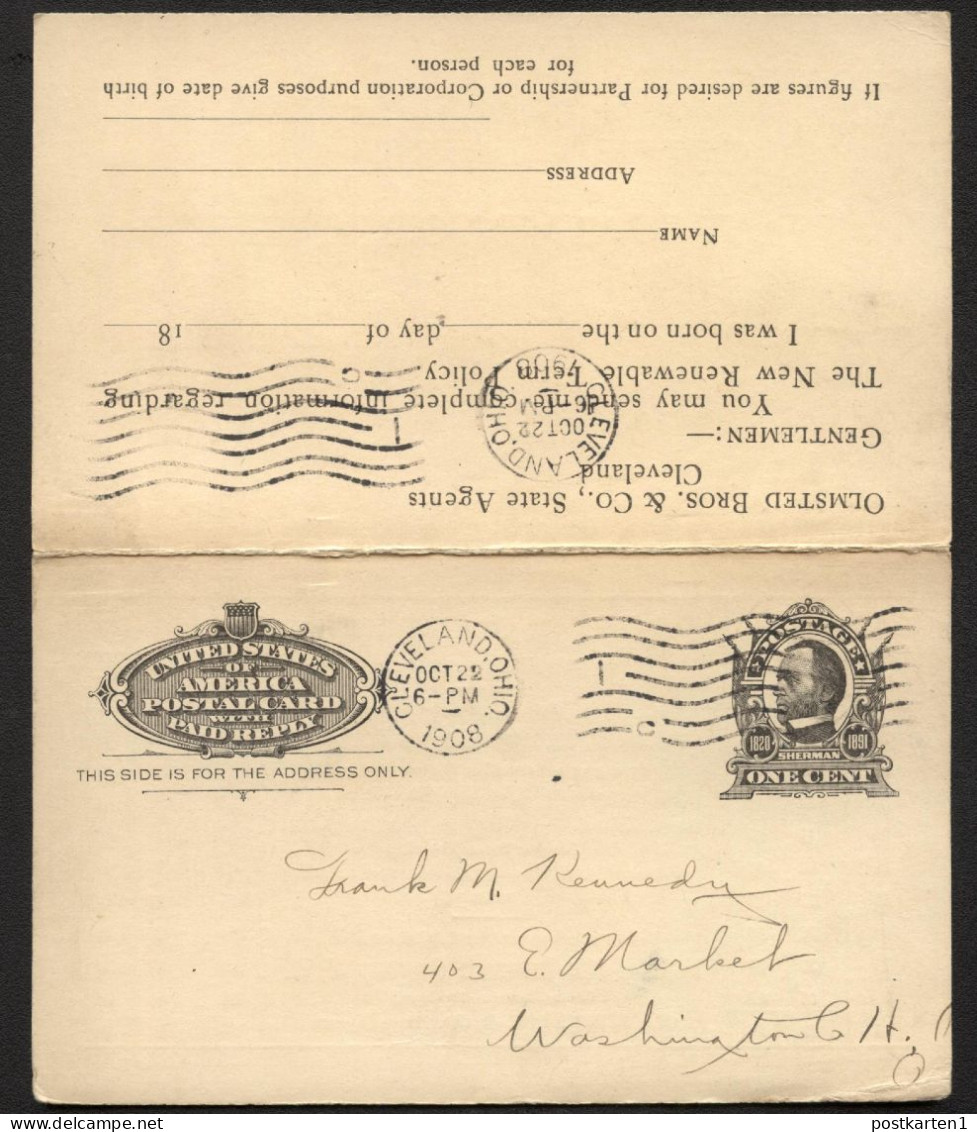 OLMSTED BROS. & CO., State Agents
Cleveland
GENTLEMEN:—
You may send me complete information regarding
The New Renewable Term Policy.
I was born on the day of 18
NAME
ADDRESS
If figures are desired for Partnership or Corporation purposes give date of birth
for each person.
CLEVELAND, OHIO.
OCT 22
6-PM
1908
UNITED STATES
OF
AMERICA
POSTAL CARD
WITH
PAID REPLY
THIS SIDE IS FOR THE ADDRESS ONLY.
CLEVELAND, OHIO.
OCT 22
6-PM
1908
POSTAGE
1820 1891
SHERMAN
ONE CENT
Frank M. Kennedy
403 E. Market
Washington C. H.,
O
postkarten1